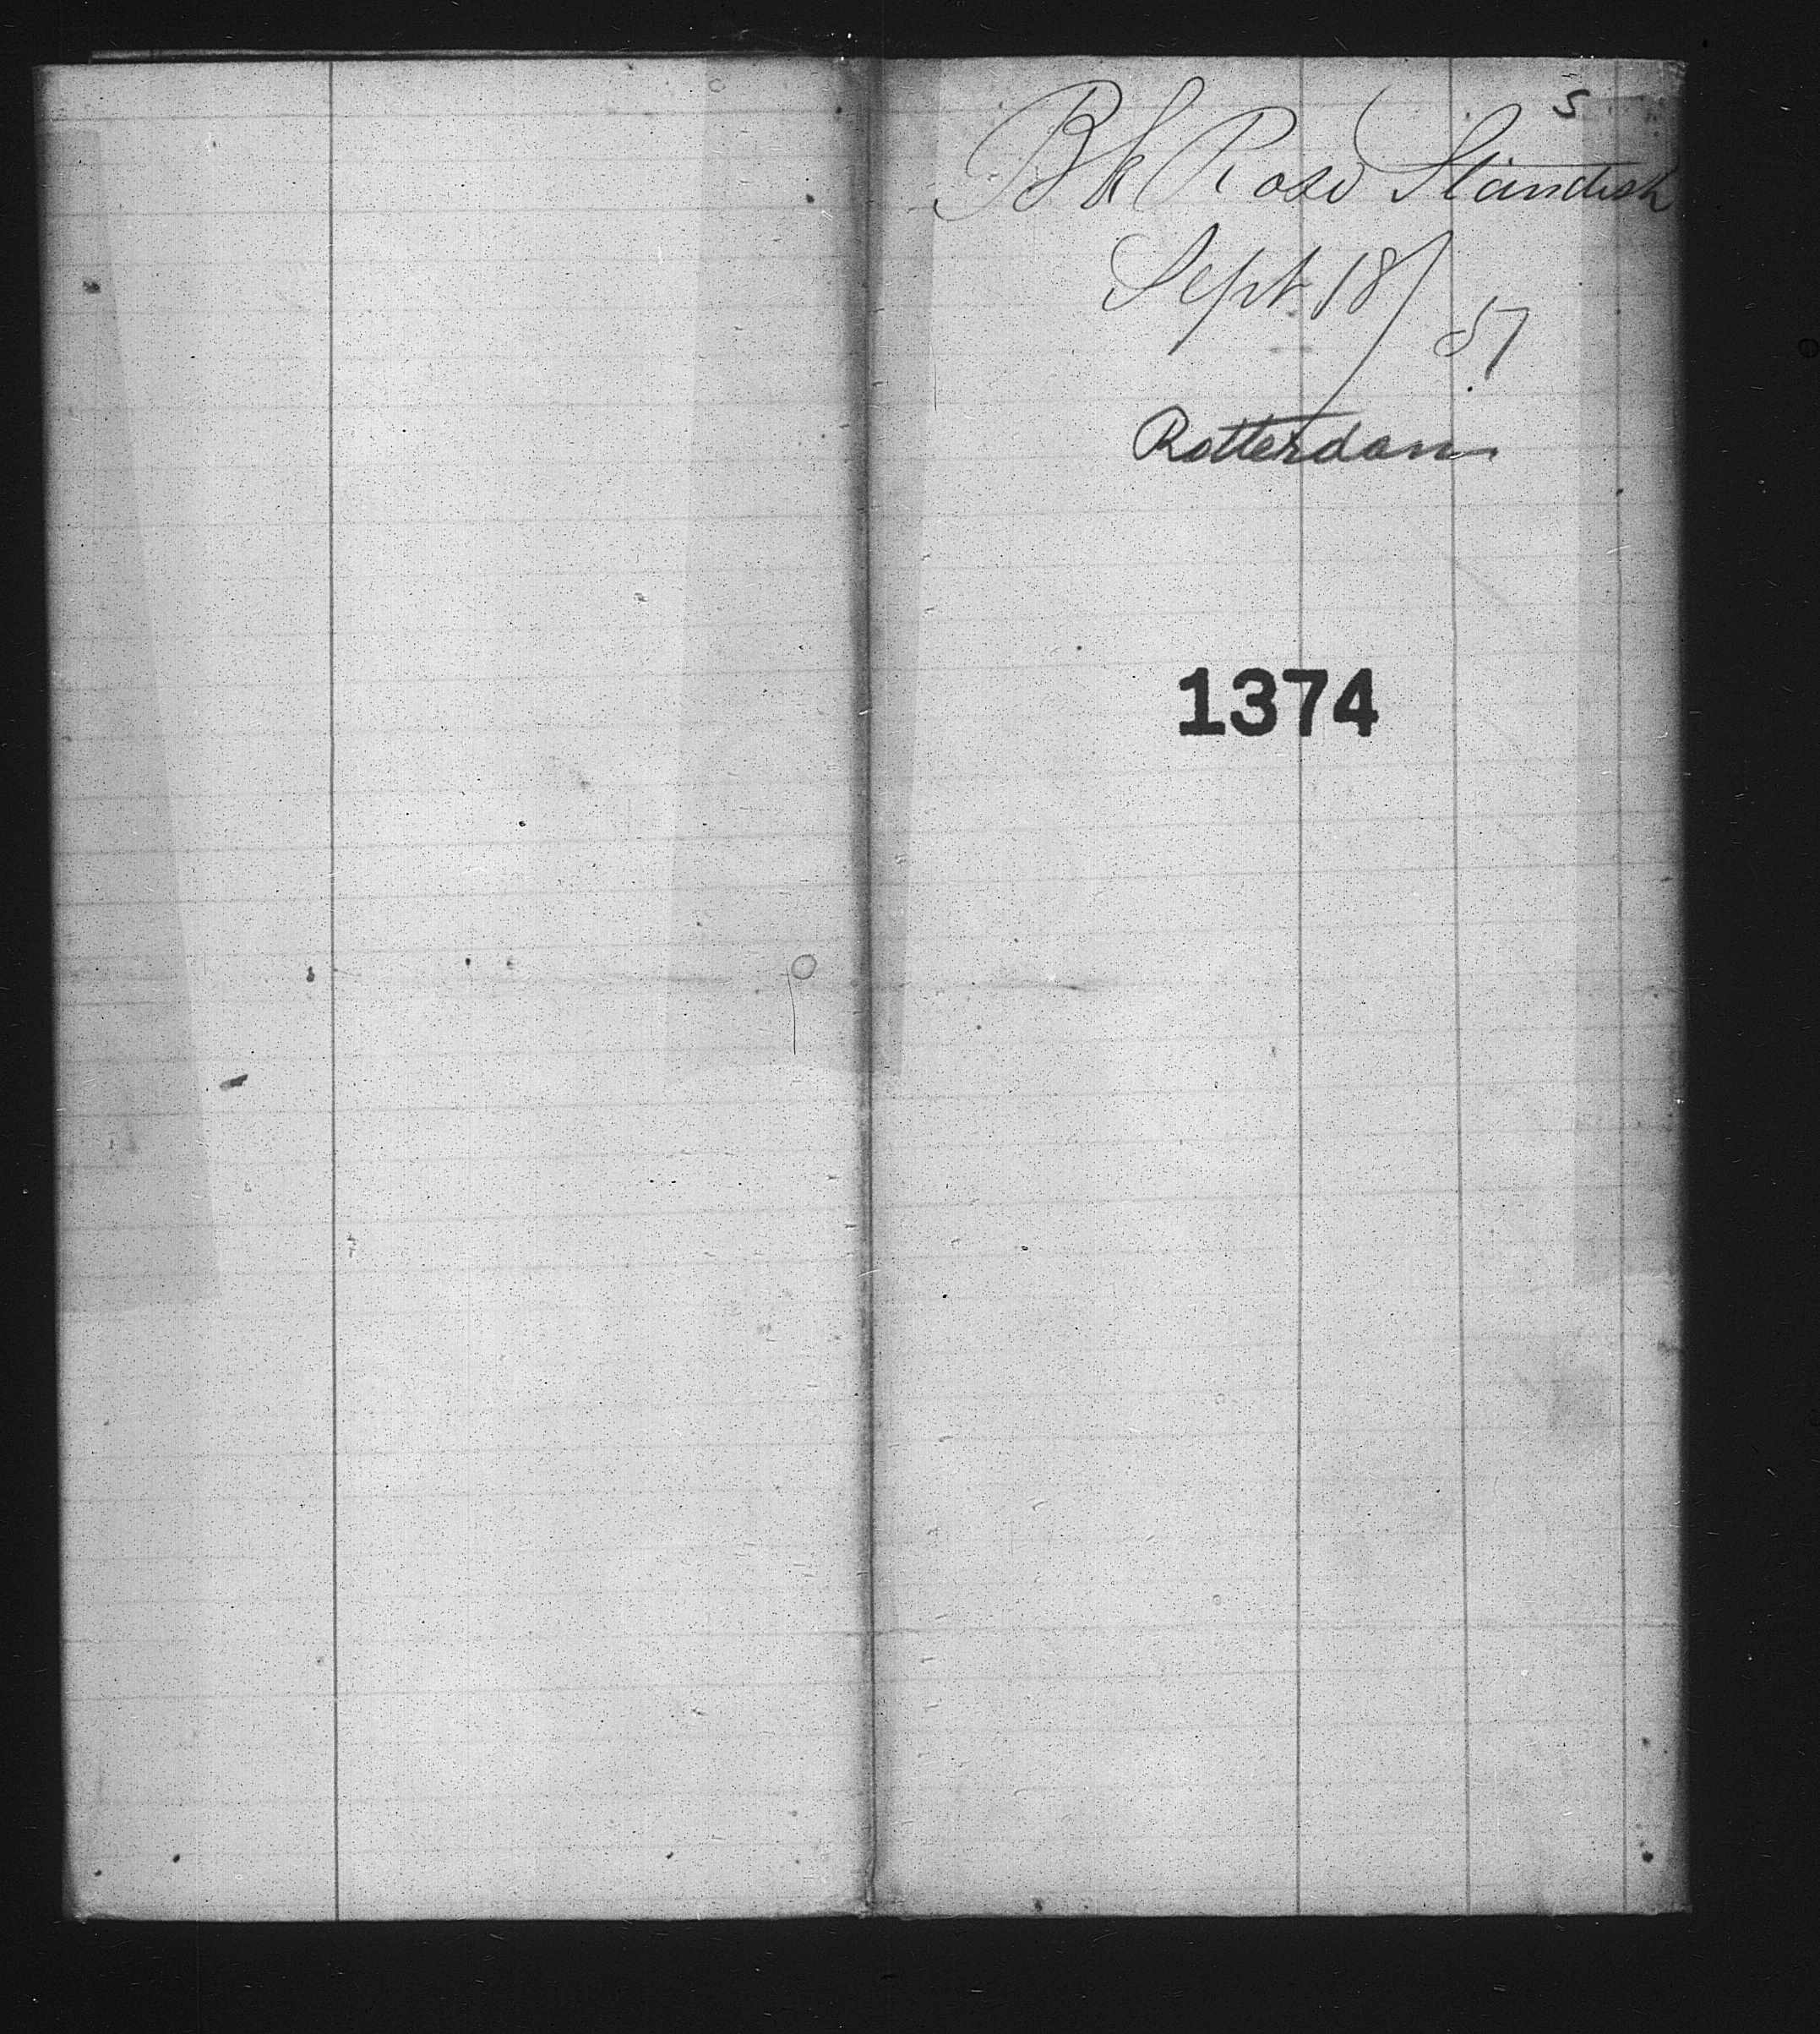 S
Bk Rose Standish
Sept 18/57
Rotterdam
1374